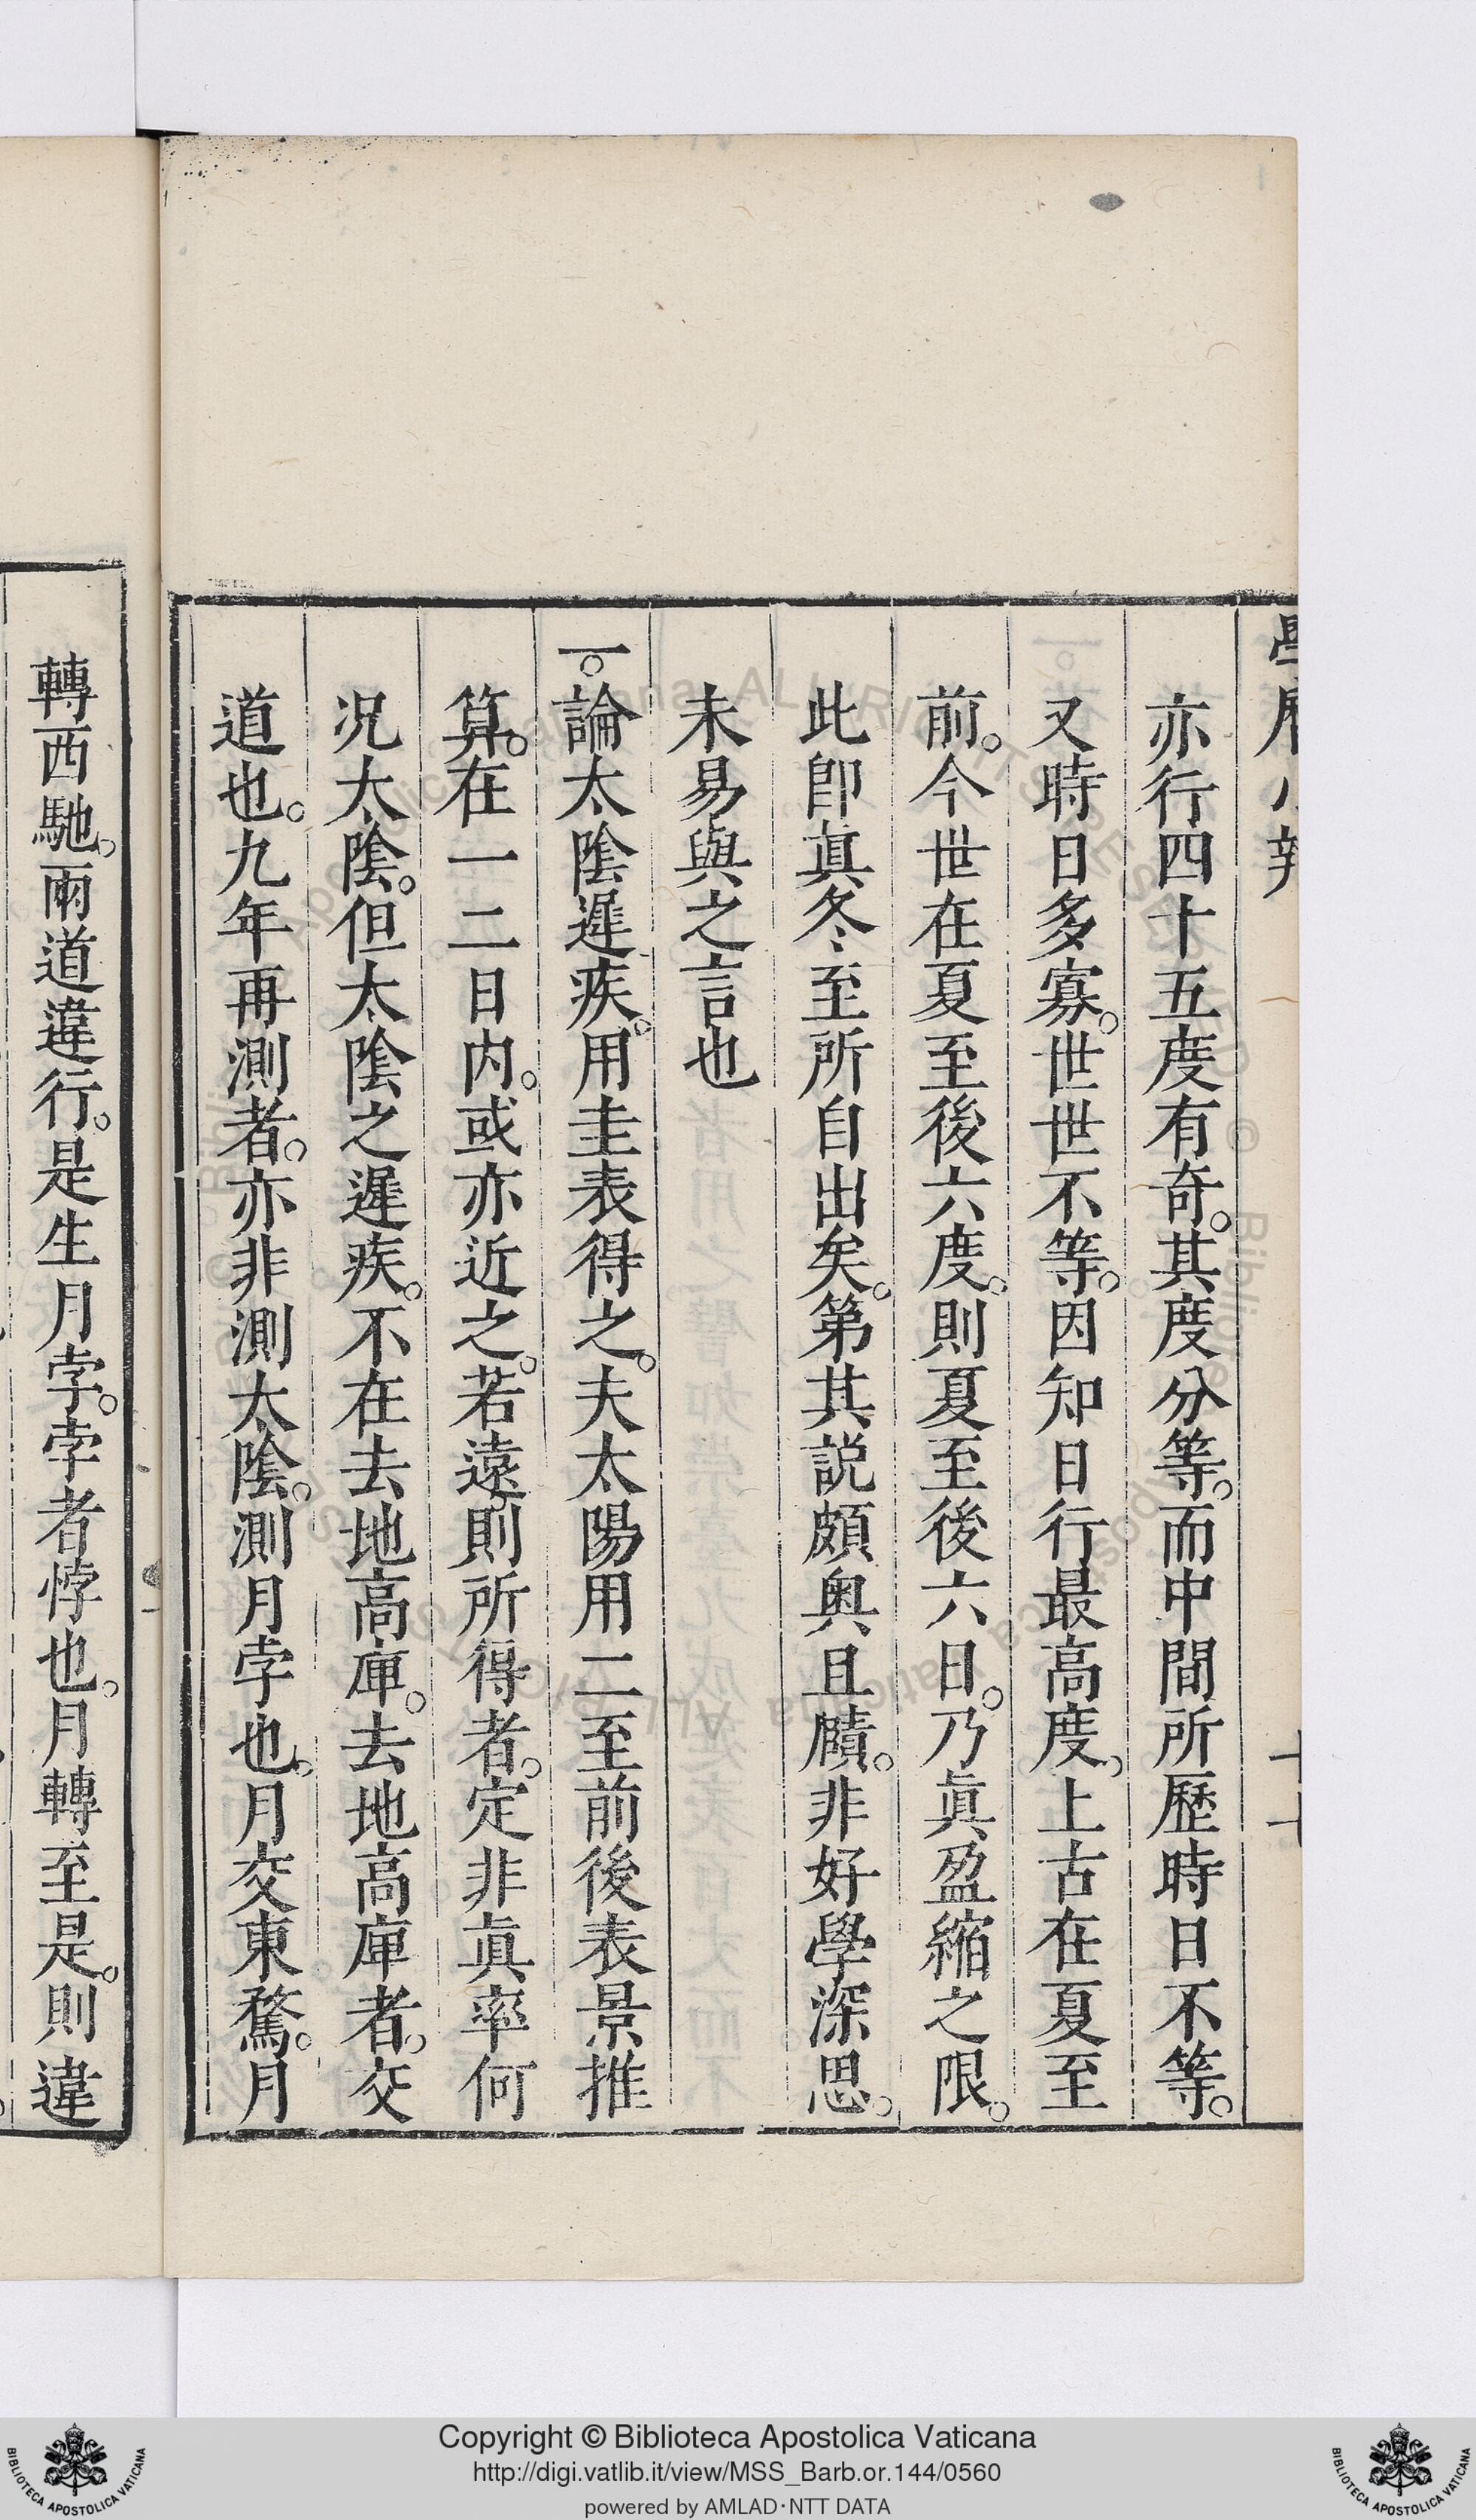 亦行四十五度有奇。其度分等。而中間所歷時日不等。
又時日多寡。世世不等。因知日行最高度。上古在夏至
前。今世在夏至後六度。則夏至後六日。乃眞盈縮之限。
此卽眞冬至所自出矣。第其説頗奥且賾。非好學深思。
未易與之言也
一。論太陰遲疾。用圭表得之。夫太陽用二至前後表景推
算。在一二日内。或亦近之。若遠則所得者。定非眞率何
况太陰。但太陰之遲疾。不在去地高庳。去地高庳者。交
道也。九年再測者。亦非測太陰。測月孛也。月交東騖。月
轉西馳。兩道違行。是生月孛。孛者悖也。月轉至是。則違
Copyright © Biblioteca Apostolica Vaticana
http://digi.vatlib.it/view/MSS_Barb.or.144/0560
powered by AMLAD·NTT DATA
BIBLIOTECA APOSTOLICA VATICANA
BIBLIOTECA APOSTOLICA VATICANA